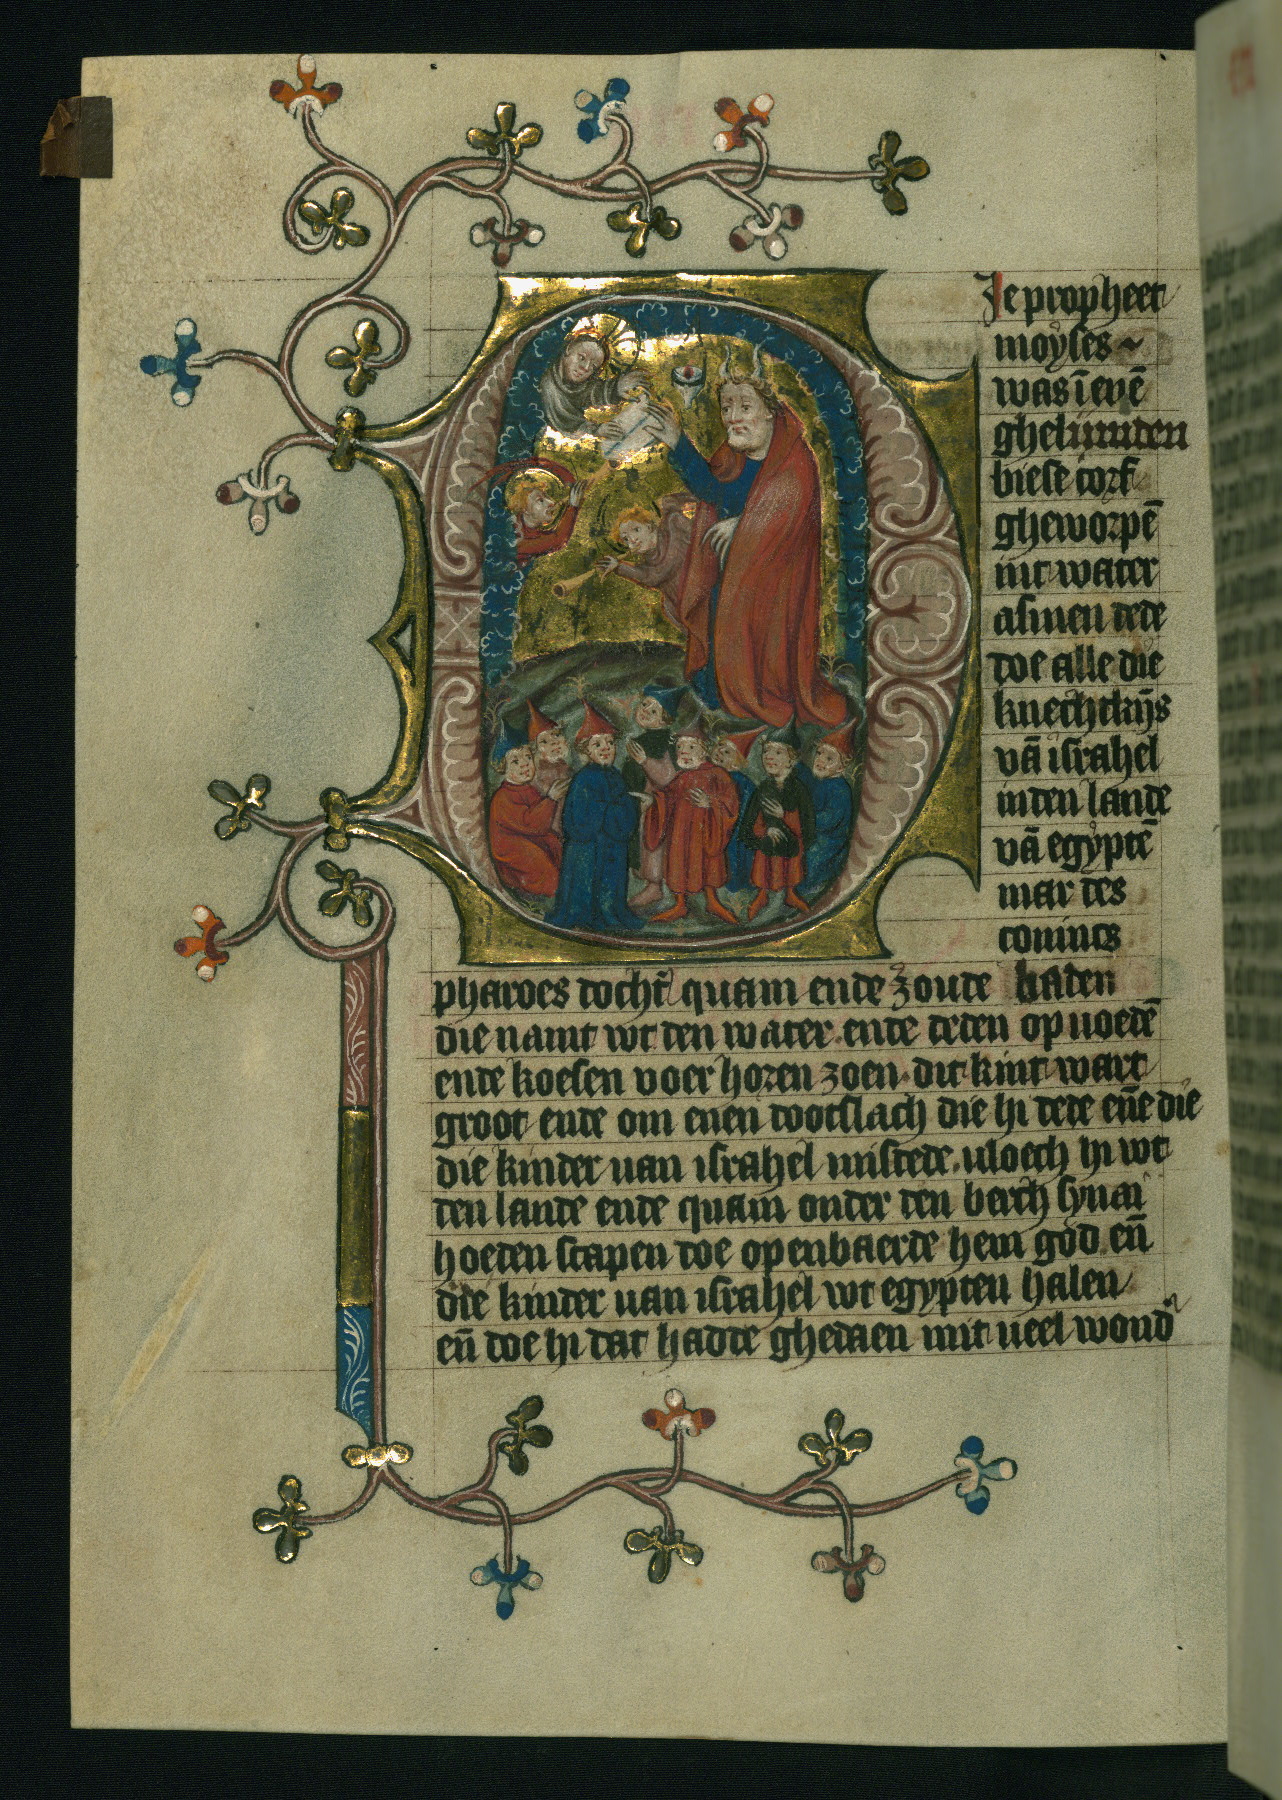 Je propheet
moyses ~
was ī evē
ghelimden
biese corf
gheworpē
int water
alsmen dede
doe alle die
knechtkijs
vā israhel
inden lande
vā egyptē
mar des
conincs
pharoes docht̄ quam ende zoude baden
die namt wt den water. ende deden op uoedē
ende koesen voer horen zoen. dit kint wart
groot ende om enen dootslach die hi dede en̄e die
die kinder uan israhel misdede. uloech hi wt
den lande ende quam onder den berch synai
hoeden scapen doe openbaerde hem god. en̄
die kinder uan israhel wt egypten halen
en̄ doe hi dat hadde ghedaen mit ueel wond᷑